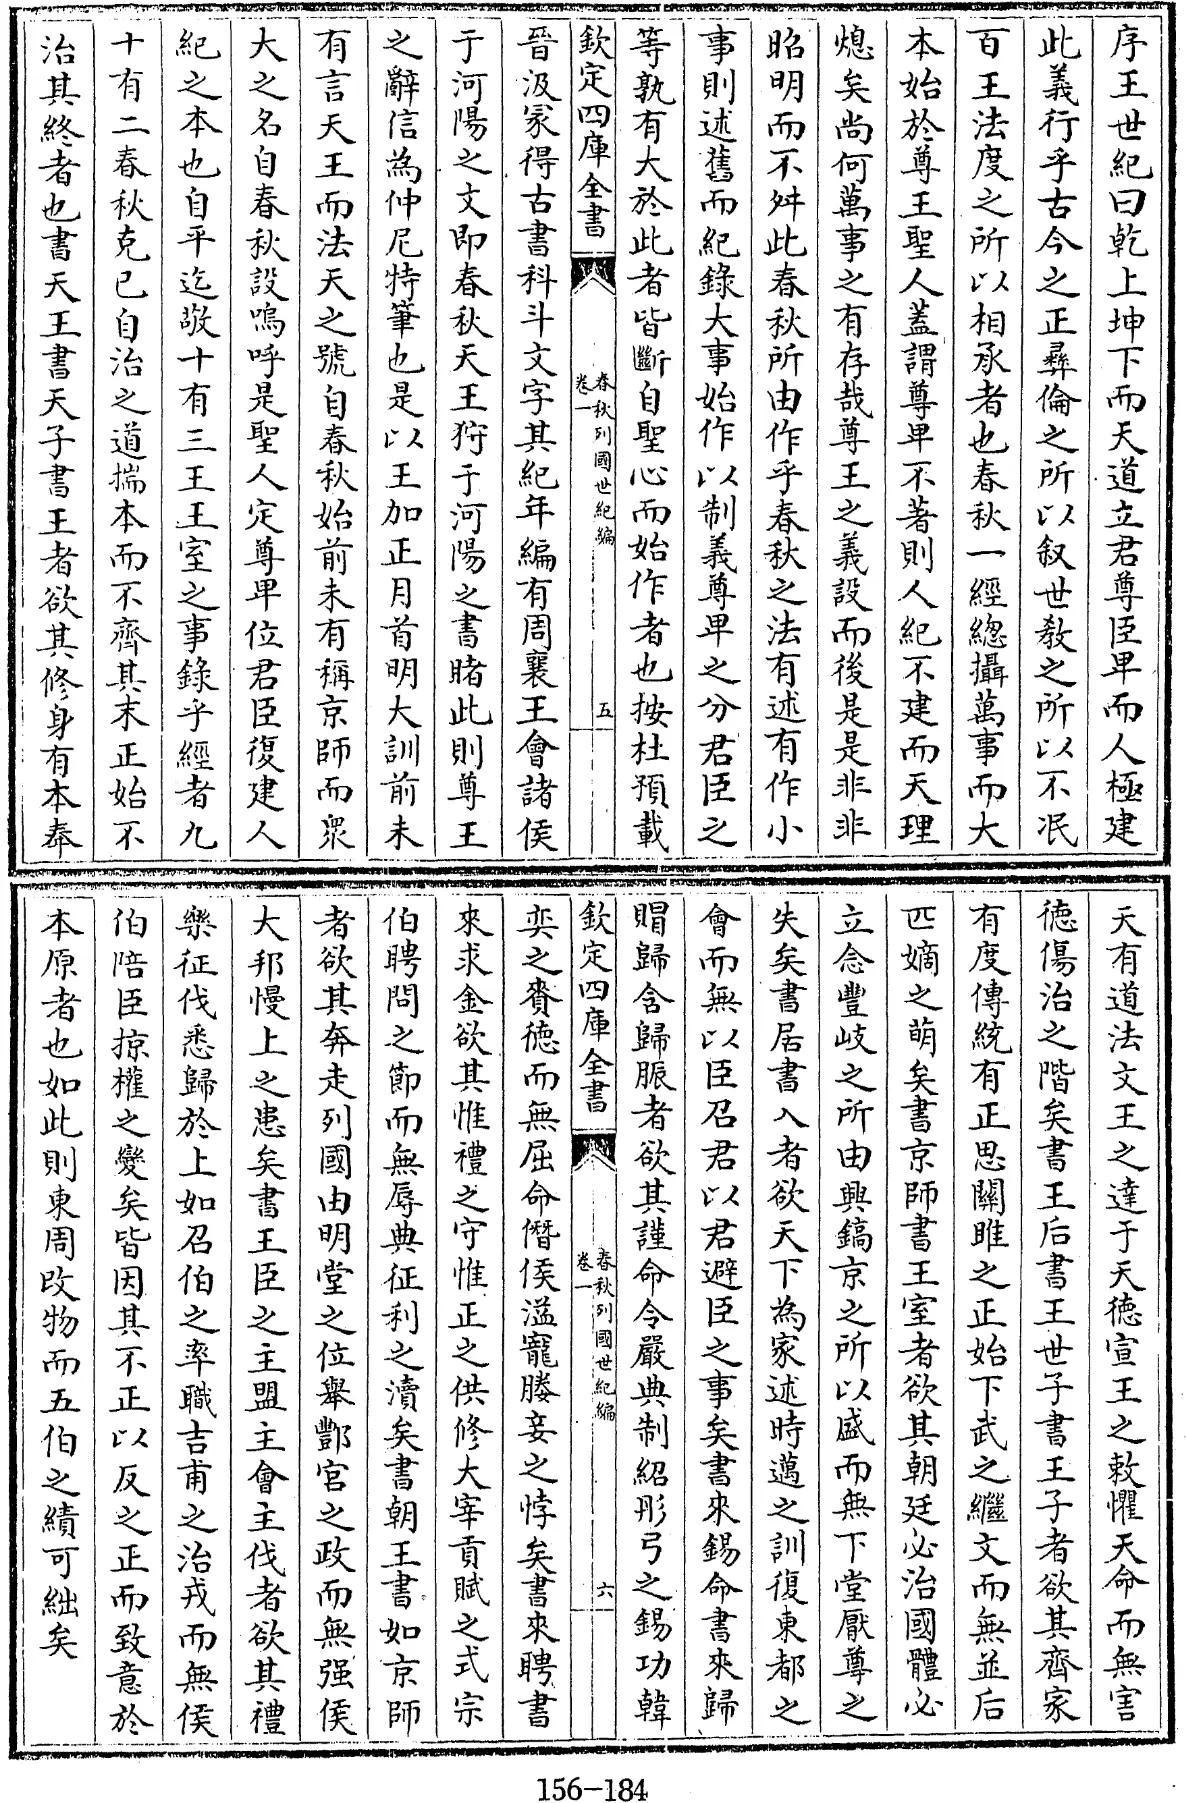 序王世紀曰乾上坤下而天道立君尊臣卑而人極建
此義行乎古今之正彞倫之所以叙世教之所以不泯
百王法度之所以相承者也春秋一經總攝萬事而大
本始於尊王聖人蓋謂尊卑不著則人紀不建而天理
熄矣尚何萬事之有存哉尊王之義設而後是是非非
昭明而不舛此春秋所由作乎春秋之法有述有作小
事則述舊而紀錄大事始作以制義尊卑之分君臣之
等孰有大於此者皆斷自聖心而始作者也按杜預載
欽定四庫全書
春秋列國世紀編
卷一
五
晉汲冢得古書科斗文字其紀年編有周襄王會諸侯
于河陽之文即春秋天王狩于河陽之書睹此則尊王
之辭信為仲尼特筆也是以王加正月首明大訓前未
有言天王而法天之號自春秋始前未有稱京師而衆
大之名自春秋設嗚呼是聖人定尊卑位君臣復建人
紀之本也自平迄敬十有三王王室之事錄乎經者九
十有二春秋克已自治之道揣本而不齊其末正始不
治其終者也書天王書天子書王者欲其修身有本奉
天有道法文王之達于天德宣王之敕懼天命而無害
德傷治之階矣書王后書王世子書王子者欲其齊家
有度傳統有正思關雎之正始下武之繼文而無並后
匹嫡之萌矣書京師書王室者欲其朝廷必治國體必
立念豐岐之所由興鎬京之所以盛而無下堂厭尊之
失矣書居書入者欲天下為家述時邁之訓復東都之
會而無以臣召君以君避臣之事矣書來錫命書來歸
賵歸含歸脤者欲其謹命令嚴典制紹彤弓之錫功韓
欽定四庫全書
春秋列國世紀編
卷一
六
奕之賚德而無屈命僭侯溢寵媵妾之悖矣書來聘書
來求金欲其惟禮之守惟正之供修大宰貢賦之式宗
伯聘問之節而無辱典征利之瀆矣書朝王書如京師
者欲其奔走列國由明堂之位舉酆宮之政而無强侯
大邦慢上之患矣書王臣之主盟主會主伐者欲其禮
樂征伐悉歸於上如召伯之率職吉甫之治戎而無侯
伯陪臣掠權之變矣皆因其不正以反之正而致意於
本原者也如此則東周改物而五伯之績可絀矣
156-184